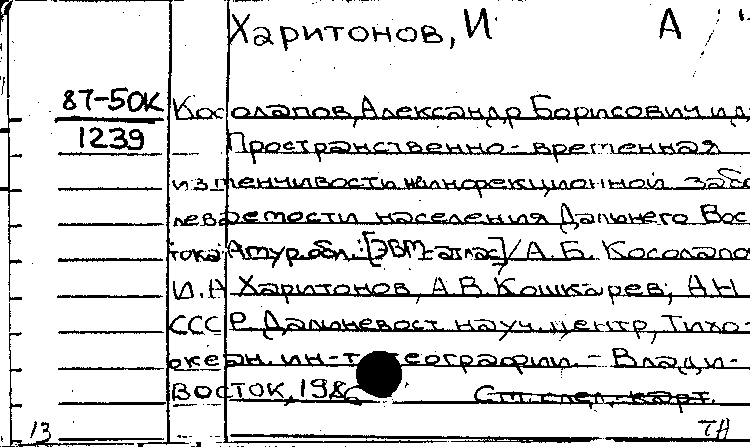 Харитонов, И А
87-50К
1239
Косолапов, Александр Борисович и д
Пространственно-временная
изменчивость неинфекционной забо
леваемости населения Дальнего Вос
тока: Амур. обл.: [ЭВМ-атлас] / А. Б. Косолапо
И.А Харитонов, А.В. Кошкарев; АН
СССР, Дальневост. науч. центр, Тихо-
океан. ин-т географии. - Влади-
восток, 1986
См. след. карт.
13